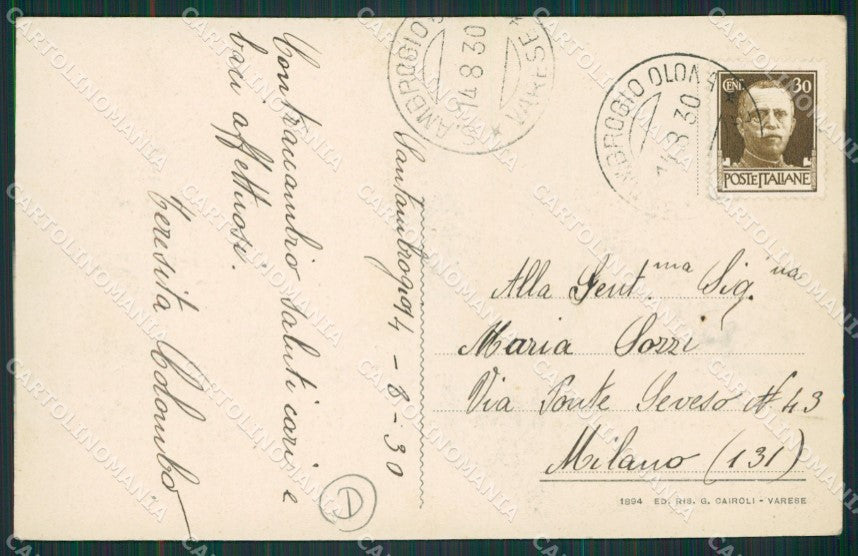 Santambrogio 14-8-30
Contraccambio saluti cari e
baci affettuosi.
Teresita Colombo
D
S. AMBROGIO OLONA
14.8.30
* VARESE *
AMBROGIO OLONA
14.8.30
CENT. 30
POSTE ITALIANE
Alla Gent.ma Sig.ina
Maria Sozzi
Via Ponte Seveso N 43
Milano (131)
1894 ED. RIS. G. CAIROLI - VARESE
CARTOLINOMANIA